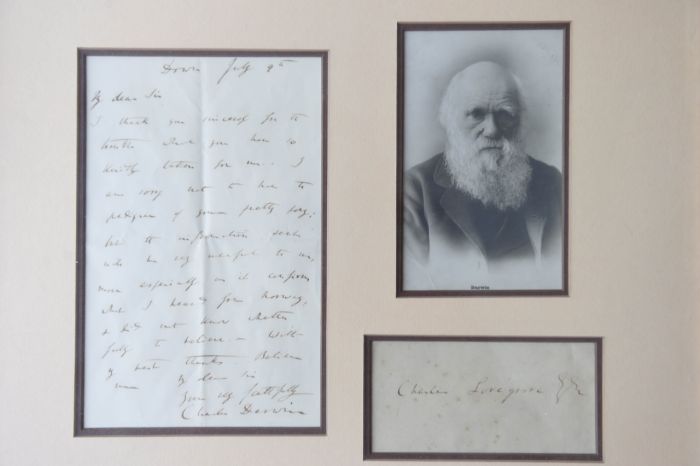 Down July 9th
My dear Sir
I thank you sincerely for the
trouble which you have so
kindly taken for me. - I
am sorry not to have the
pedigree of your pretty
but the information
will be very useful to me,
more especially as it confirms
what I heard from Norway,
& did not know whether
fully to believe. - With
my best thanks Believe
me My dear Sir
Yours very faithfully
Charles Darwin
Darwin
Charles Lovegrove Esq